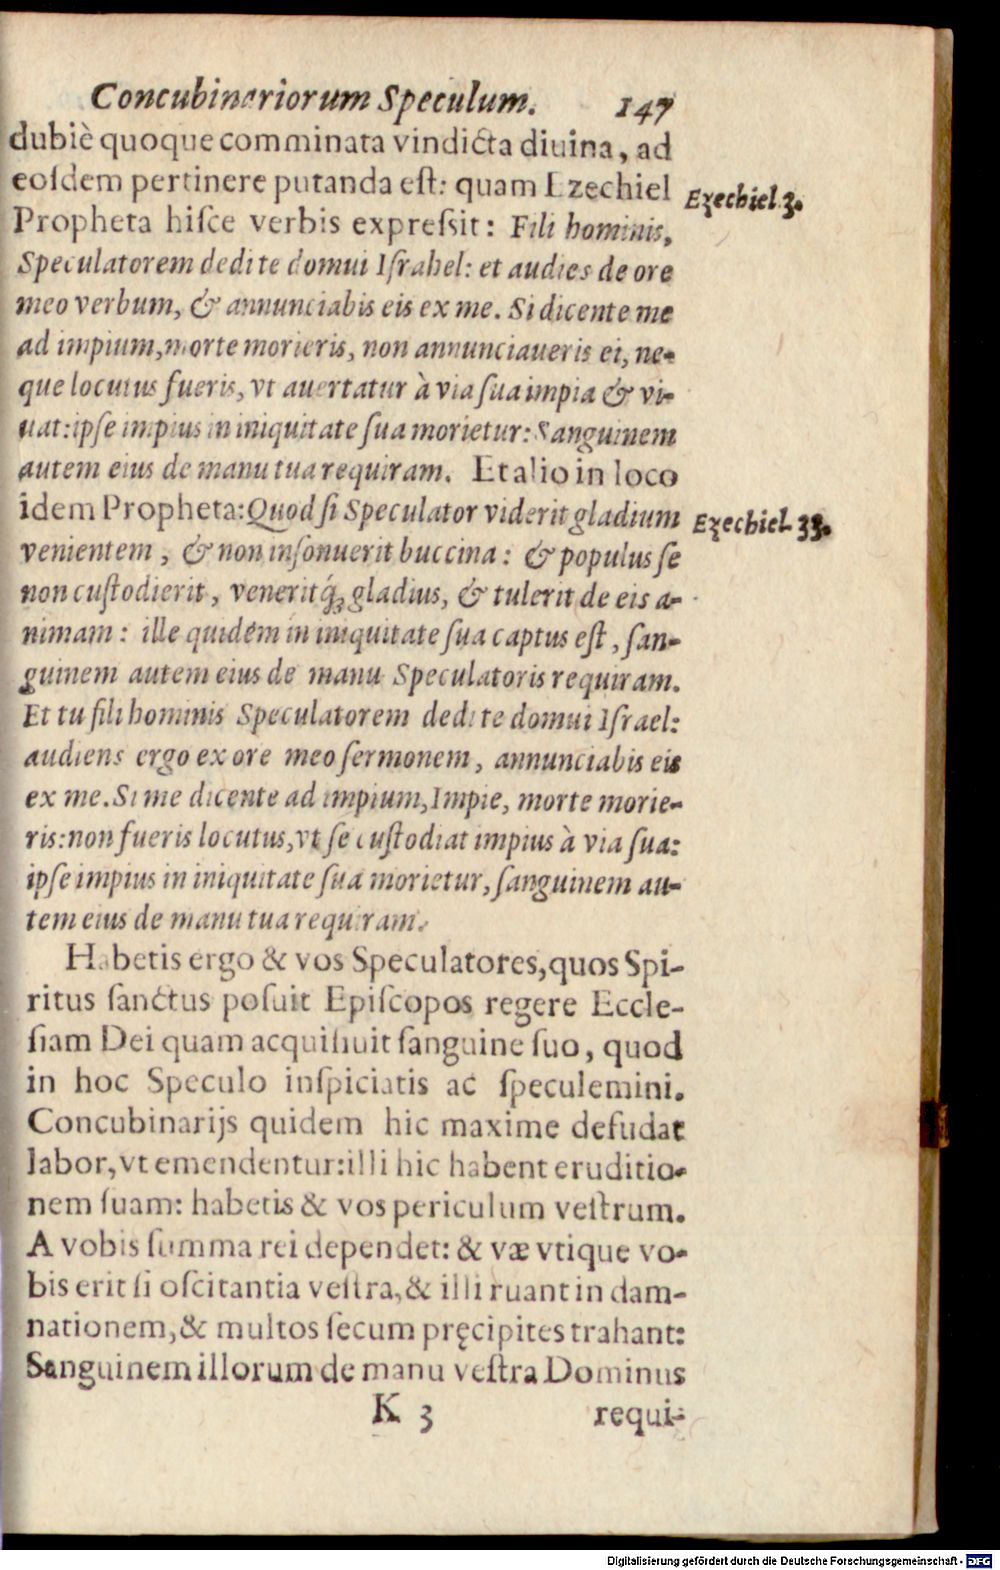 Concubinariorum Speculum. 147
dubiè quoque comminata vindicta diuina, ad
eoſdem pertinere putanda eſt: quam Ezechiel
Ezechiel 3.
Propheta hiſce verbis expreſsit: Fili hominis,
Speculatorem dedi te domui Iſrahel: et audies de ore
meo verbum, & annunciabis eis ex me. Si dicente me
ad impium, morte morieris, non annunciaueris ei, ne-
que locutus fueris, vt auertatur à via ſua impia & vi-
uat: ipſe impius in iniquitate ſua morietur: Sanguinem
autem eius de manu tua requiram. Et alio in loco
idem Propheta: Quod ſi Speculator viderit gladium
Ezechiel 33.
venientem, & non inſonuerit buccina: & populus ſe
non cuſtodierit, veneritq́ꝫ gladius, & tulerit de eis a-
nimam: ille quidem in iniquitate ſua captus eſt, ſan-
guinem autem eius de manu Speculatoris requiram.
Et tu fili hominis Speculatorem dedi te domui Iſrael:
audiens ergo ex ore meo ſermonem, annunciabis eis
ex me. Si me dicente ad impium, Impie, morte morie-
ris: non fueris locutus, vt ſe cuſtodiat impius à via ſua:
ipſe impius in iniquitate ſua morietur, ſanguinem au-
tem eius de manu tua requiram.
Habetis ergo & vos Speculatores, quos Spi-
ritus ſanctus poſuit Epiſcopos regere Eccle-
ſiam Dei quam acquiſiuit ſanguine ſuo, quod
in hoc Speculo inſpiciatis ac ſpeculemini.
Concubinarijs quidem hic maxime deſudat
labor, vt emendentur: illi hic habent eruditio-
nem ſuam: habetis & vos periculum veſtrum.
A vobis ſumma rei dependet: & væ vtique vo-
bis erit ſi oſcitantia veſtra, & illi ruant in dam-
nationem, & multos ſecum pręcipites trahant:
Sanguinem illorum de manu veſtra Dominus
K 3 requi-
Digitalisierung gefördert durch die Deutsche Forschungsgemeinschaft - DFG